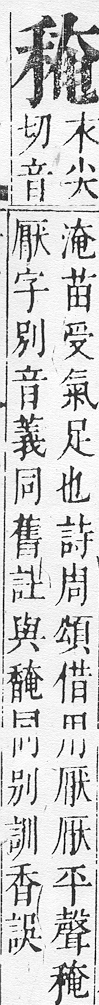 䅖
衣尖
切音
淹苗受氣足也詩周頌借用厭厭平聲䅖
厭字別音義同舊註與馣同別訓香誤